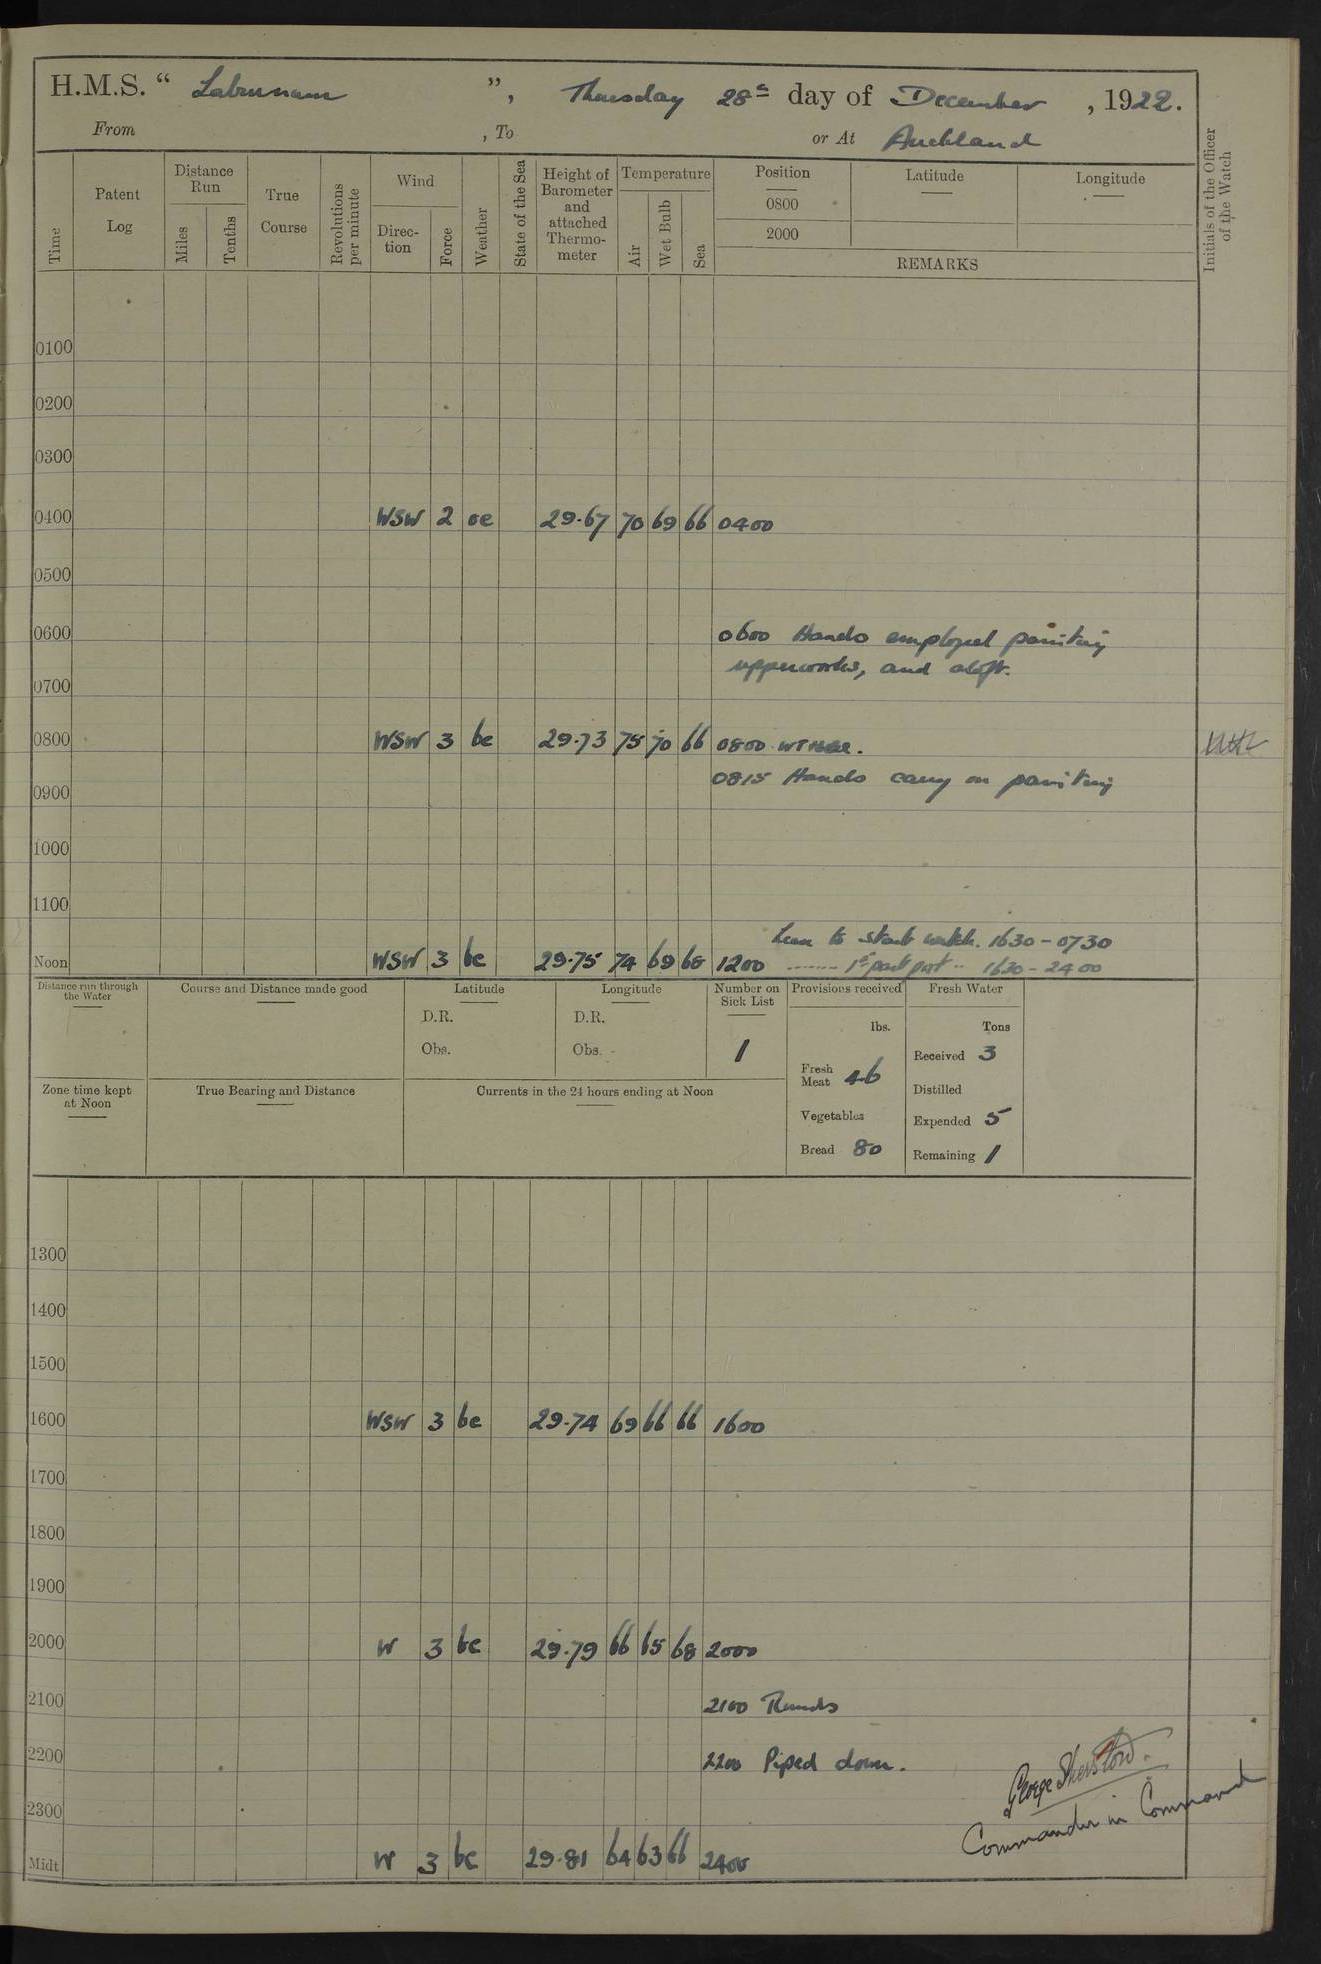 H.M.S. “ Laburnum ”, Thursday 28th day of December , 1922.
From , To or At Auckland
Time
Patent Log
Distance Run
Miles
Tenths
True Course
Revolutions per minute
Wind
Direction
Force
Weather
State of the Sea
Height of Barometer and attached Thermometer
Temperature
Air
Wet Bulb
Sea
Position
0800
2000
Latitude
Longitude
REMARKS
Initials of the Officer of the Watch
0100
0200
0300
0400 WSW 2 oc 29.67 70 69 66 0400
0500
0600 0600 Hands employed painting
upperworks, and aloft.
0700
0800 WSW 3 bc 29.73 75 70 66 0800
0815 Hands carry on painting
0900
1000
1100
Leave to starb watch. 1630 - 0730
Noon WSW 3 bc 29.75 74 69 66 1200 1st part port 1630 - 2400
Distance run through the Water
Course and Distance made good
Latitude
D.R.
Obs.
Longitude
D.R.
Obs.
Number on Sick List
1
Provisions received
lbs.
Fresh Meat 46
Vegetables
Bread 80
Fresh Water
Tons
Received 3
Distilled
Expended 5
Remaining 1
Zone time kept at Noon
True Bearing and Distance
Currents in the 24 hours ending at Noon
1300
1400
1500
1600 WSW 3 bc 29.74 69 66 66 1600
1700
1800
1900
2000 W 3 bc 29.79 66 65 68 2000
2100 2100 Rounds
2200 2200 Piped down.
2300
George Sherston.
Commander in Command
Midt W 3 bc 29.81 64 63 66 2400